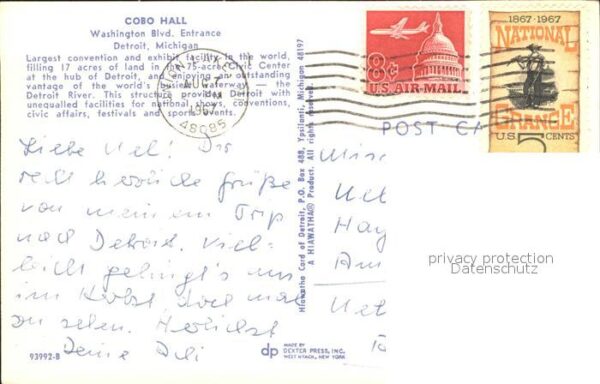 COBO HALL
Washington Blvd. Entrance
Detroit, Michigan
Largest convention and exhibit facility in the world,
filling 17 acres of land in the 75-acre Civic Center
at the hub of Detroit, and enjoying an outstanding
vantage of the world's busiest waterway — the
Detroit River. This structure provides Detroit with
unequalled facilities for national shows, conventions,
civic affairs, festivals and sports events.
Liebe Uel! Dir
recht herzliche Grüße
von meinem Trip
nach Detroit. Viel-
leicht gelingt's uns
im Herbst doch mal
zu sehen. Herzlichst
Deine
93992-B
AUG 7
1967
48085
8¢
U.S. AIR MAIL
1867·1967
NATIONAL
GRANGE
U.S. 5 CENTS
POST CA
Hiawatha Card of Detroit, P.O. Box 488, Ypsilanti, Michigan 48197
A HIAWATHA® Product. All rights reserved.
Miss
Uel
Hay
Am
Uel
privacy protection
Datenschutz
dp
MADE BY
DEXTER PRESS, INC.
WEST NYACK, NEW YORK